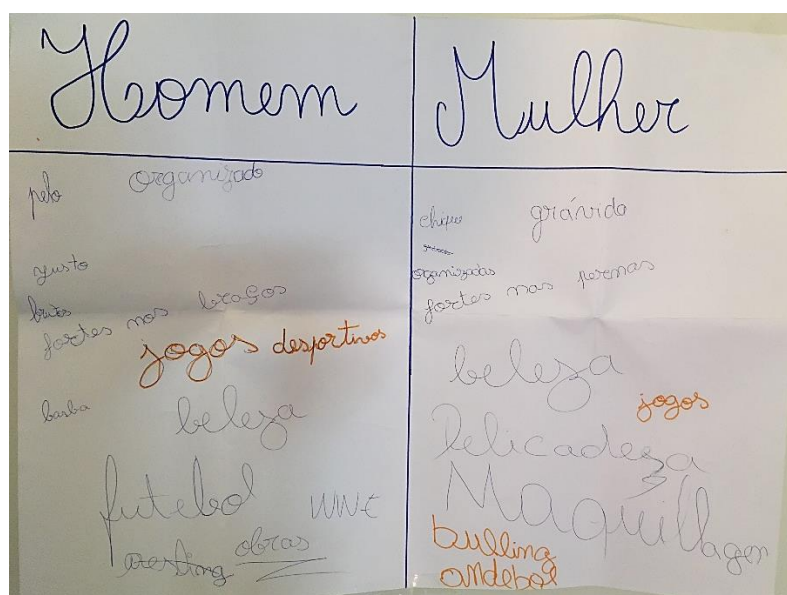 Homem
Mulher
pelo organizado
justo
brutos
fortes nos braços
jogos desportivos
barba beleza
futebol WWE
wresting obras
chique grávida
organizadas
fortes nas pernas
beleza
jogos
Delicadeza
Maquillagem
bulling
andebol